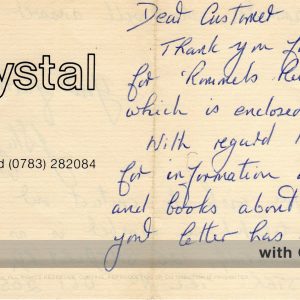 ystal
d (0783) 282084
Dear Customer
Thank you f
for Rommels
which is enclosed
With regard
for information
and books about
your letter has
with